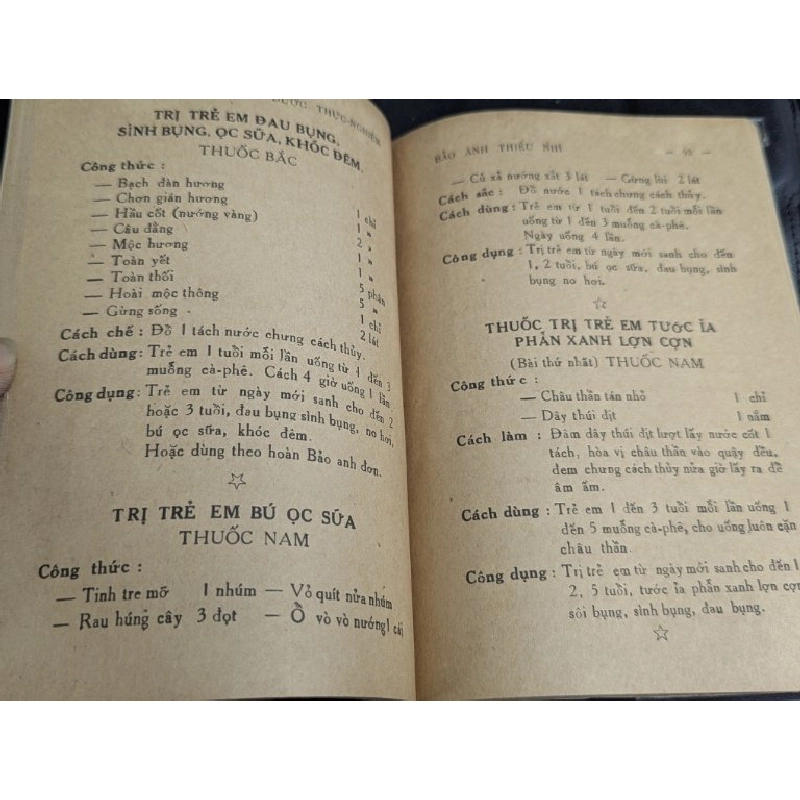 DƯỢC THỰC-NGHIỆM
TRỊ TRẺ EM ĐAU BỤNG,
SÌNH BỤNG, ỌC SỮA, KHÓC ĐÊM,
THUỐC BẮC
Công thức :
— Bạch đàn hương
— Chơn gián hương
— Hầu cốt (nướng vàng) 1 chỉ
— Cầu đằng 1 »
— Mộc hương 2 »
— Toàn yết 1 »
— Toàn thối 1 »
— Hoài mộc thông 5 phân
— Gừng sống 5 »
1 chỉ
2 lát
Cách chế : Đổ 1 tách nước chưng cách thủy.
Cách dùng: Trẻ em 1 tuổi mỗi lần uống từ 1 đến 3
muỗng cà-phê. Cách 4 giờ uống 1 lần.
Công dụng: Trẻ em từ ngày mới sanh cho đến 2
hoặc 3 tuổi, đau bụng sình bụng, no hơi,
bú ọc sữa, khóc đêm.
Hoặc dùng theo hoàn Bảo anh đơn.
TRỊ TRẺ EM BÚ ỌC SỮA
THUỐC NAM
Công thức :
— Tinh tre mỡ 1 nhúm — Vỏ quít nửa nhúm
— Rau húng cây 3 đọt — Ổ vò vò nướng 1 cái
BẢO ANH THIẾU NHI
— Củ xả nướng xắt 3 lát — Gừng lùi 2 lát
Cách sắc : Đổ nước 1 tách chưng cách thủy.
Cách dùng : Trẻ em từ 1 tuổi đến 2 tuổi mỗi lần
uống từ 1 đến 3 muỗng cà-phê.
Ngày uống 4 lần.
Công dụng : Trị trẻ em từ ngày mới sanh cho đến
1, 2 tuổi, bú ọc sữa, đau bụng, sình
bụng no hơi.
THUỐC TRỊ TRẺ EM TƯỚC ỈA
PHẨN XANH LỢN CỢN
(Bài thứ nhất) THUỐC NAM
Công thức :
— Châu thần tán nhỏ 1 chỉ
— Dây thúi địt 1 nắm
Cách làm : Đâm dây thúi địt lượt lấy nước cốt 1
tách, hòa vị châu thần vào quậy đều,
đem chưng cách thủy nửa giờ lấy ra để
âm ấm.
Cách dùng : Trẻ em 1 đến 3 tuổi mỗi lần uống 1
đến 5 muỗng cà-phê, cho uống luôn cặn
châu thần.
Công dụng : Trị trẻ em từ ngày mới sanh cho đến 1
2, 5 tuổi, tước ỉa phẩn xanh lợn cợn
sôi bụng, sình bụng, đau bụng.